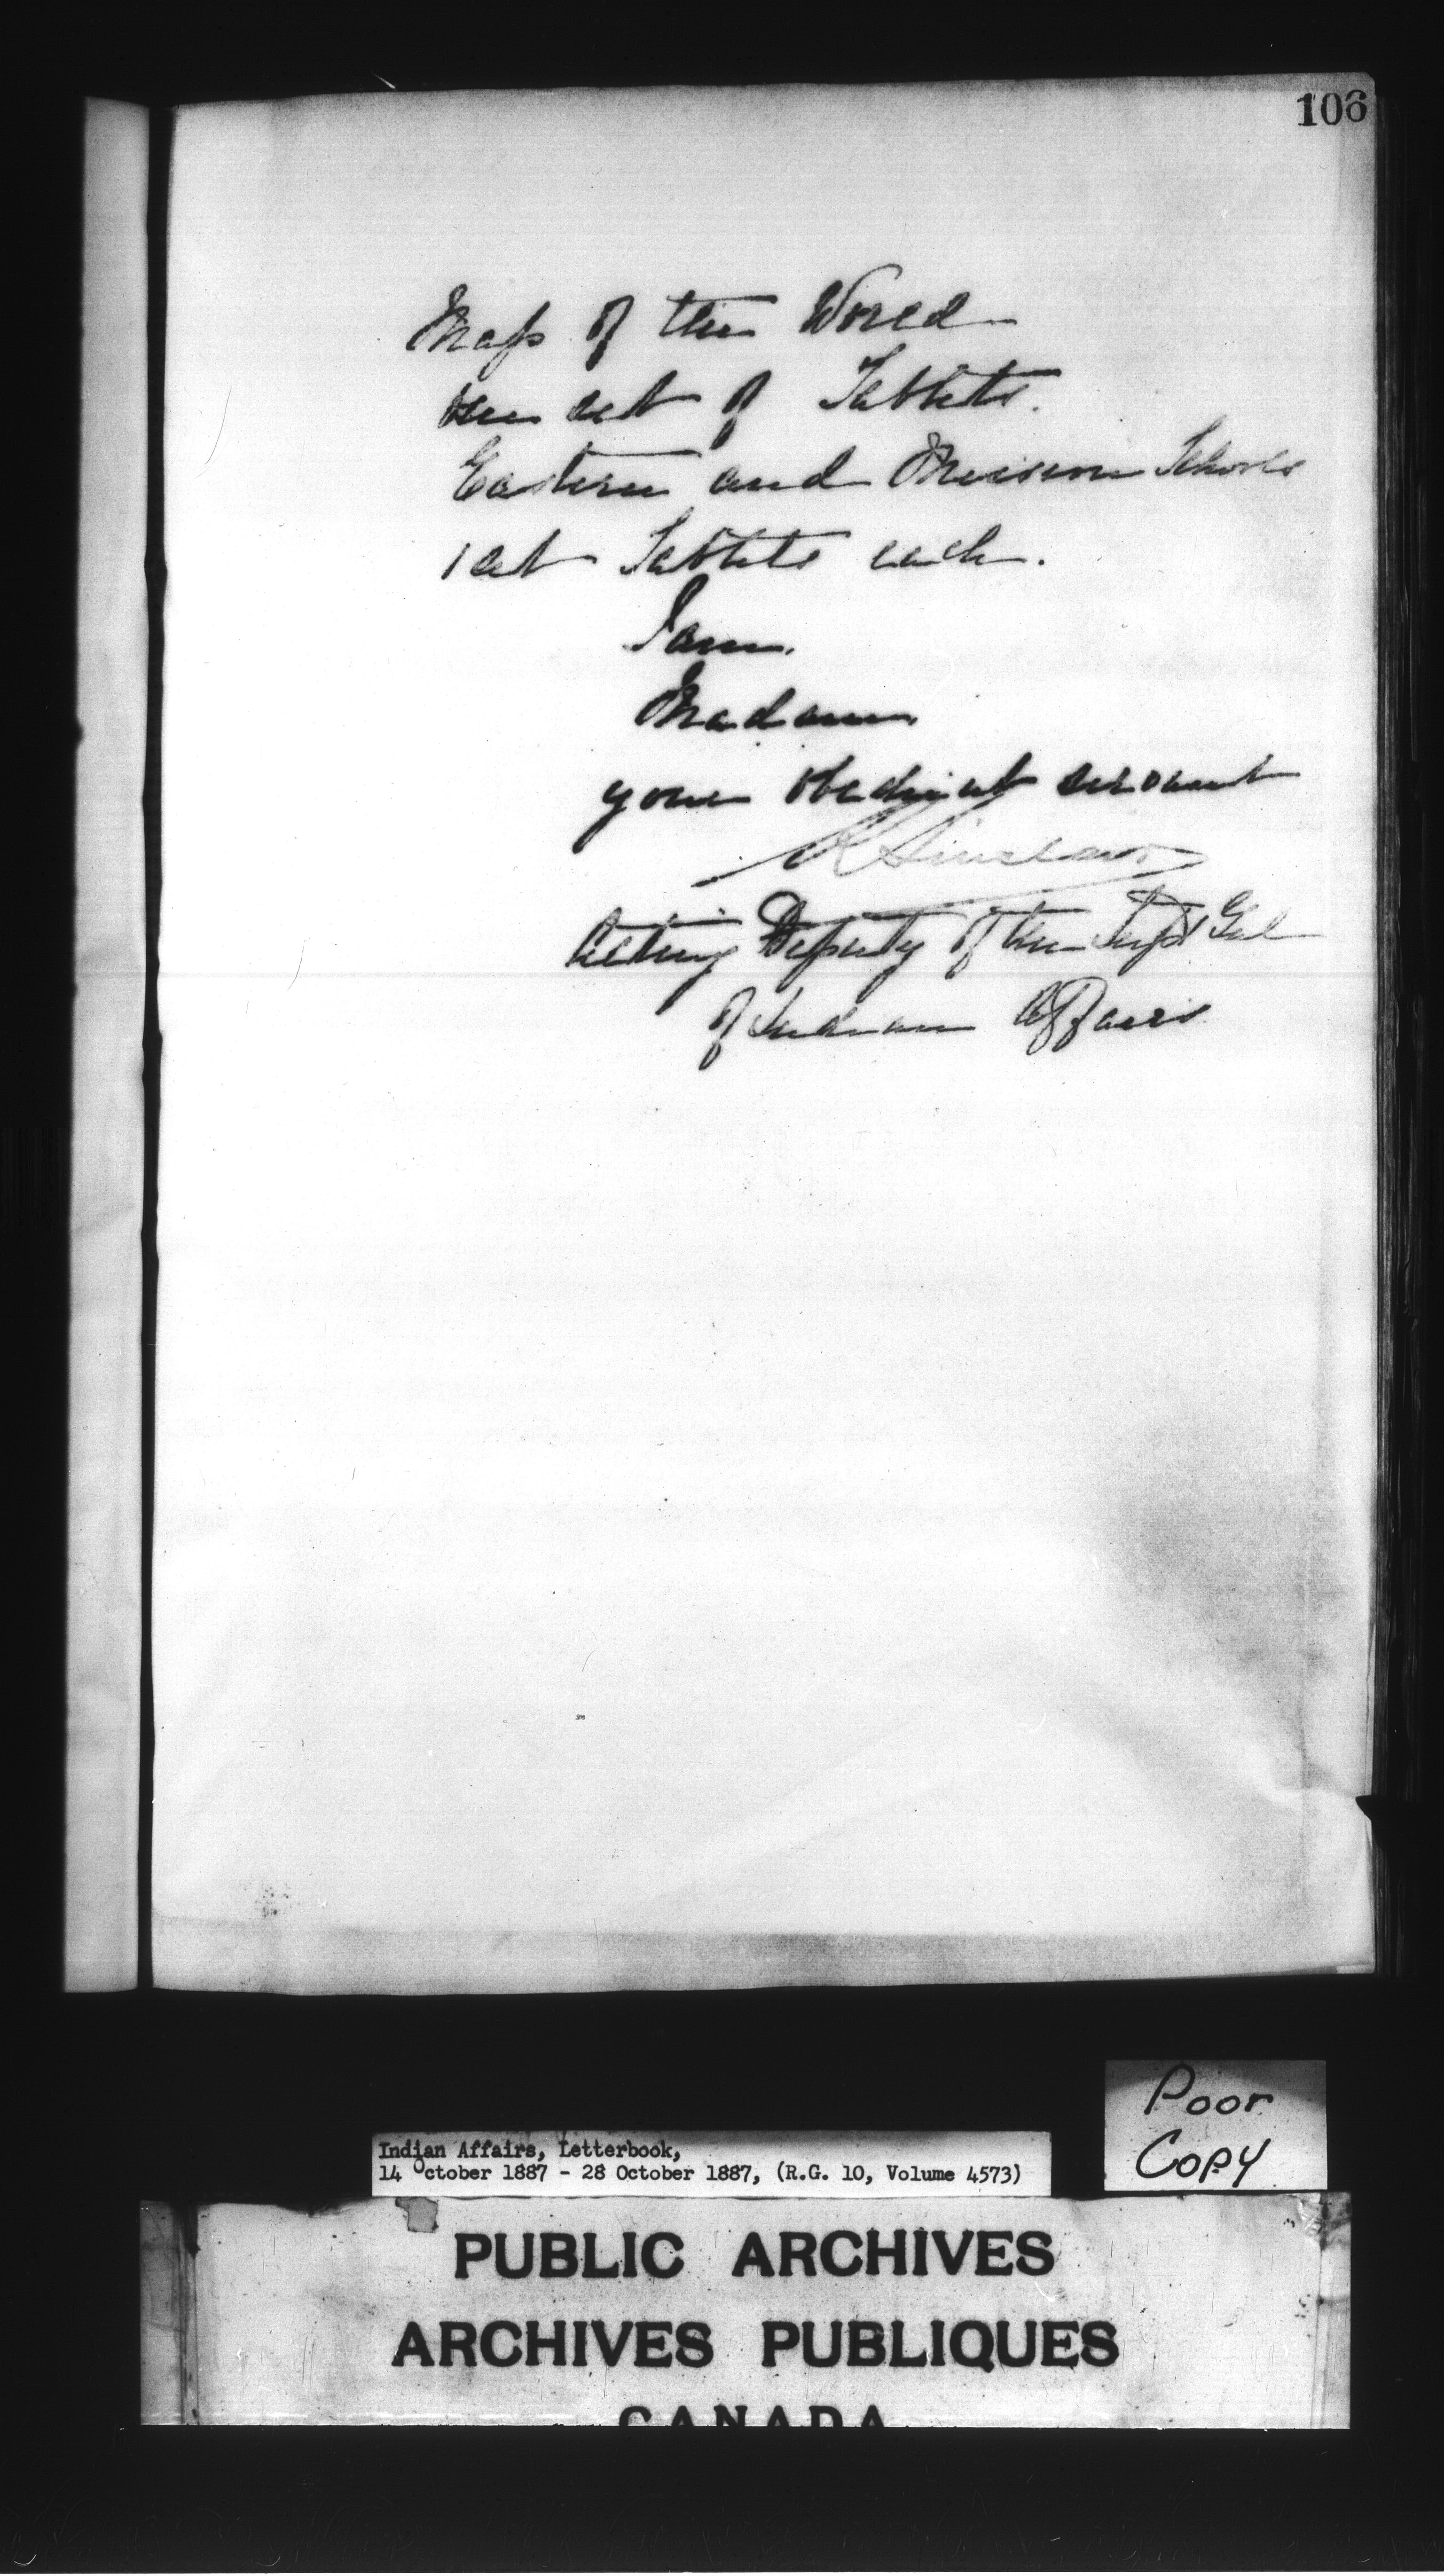 106
Map of the World
One set of Tablets.
Eastern and Mission Schools
1 set Tablets each.
I am,
Madam,
your obedient servant
R Sinclair
Acting Deputy of the Supt Genl
of Indian Affairs
Poor
Copy
Indian Affairs, Letterbook,
14 October 1887 - 28 October 1887, (R.G. 10, Volume 4573)
PUBLIC ARCHIVES
ARCHIVES PUBLIQUES
CANADA